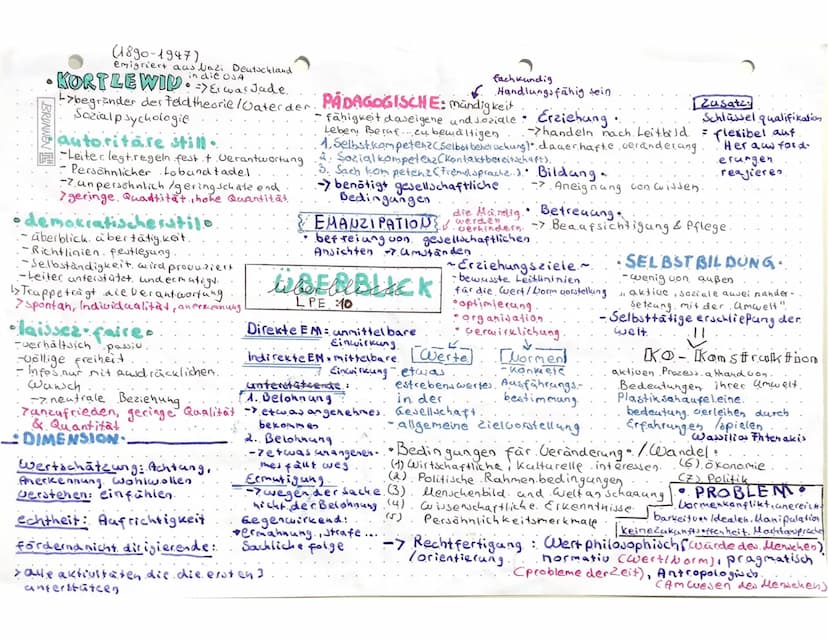 (1890-1947)
emigriert aus Nazi Deutschland
in die USA
• KORT LEWIN • => Er war Jude.
↳ begründer der Feldtheorie/Vater der
Sozialpsychologie
BRUNNEN
autoritäre still •
- Leiter legt regeln fest + Verantwortung
- Persönlicher Lob und tadel
-> unpersöhnlich/geringschätzend
> geringe Quantität, hohe Qualität
• demokratischerstil •
- überblick über tätigkeit
- Richtlinien festlegung
- Selbständigkeit wird produziert
- Leiter unterstützt und ermutigt
↳ Truppe trägt die Verantwortung
> spontan, Individualität, anerkennung
• laissez-faire •
- verhältsich passiv
- völlige freiheit
- Infos nur mit ausdrücklichen
Wunsch
-> neutrale Beziehung
> unzufrieden, geringe Qualität
& Quantität
• DIMENSION •
Wertschätzung: Achtung,
Anerkennung, Wohlwollen
verstehen: einfühlen
echtheit: Aufrichtigkeit
fördern and nicht dirigierende:
> alle aktivitäten die die ersten 3
unterstützen
fachkundig
Handlungsfähig sein
PÄDAGOGISCHE: mündigkeit
- fähigkeit das eigene und soziale
Leben, Beruf... zu bewältigen
1. Selbstkompetenz (Selbstbeherschung)
2. Sozialkompetenz (Kontaktbereitschaft)
3. Sach kompetenz (Fremdsprache.)
-> benötigt gesellschaftliche
Bedingungen
EMANZIPATION
die Mündig
werden
verhindern
• befreiung von gesellschaftlichen
Ansichten -> Umständen
ÜBERBLICK
überblick
LPE 10
• Erziehung •
-> handeln nach Leitbild
• dauerhafte veränderung
• Bildung •
-> Aneignung von wissen
• Betreuung •
-> Beaufsichtigung & Pflege
Zusatz:
Schlüsselqualifikation
= flexibel auf
Herausford-
erungen
reagieren
~ Erziehungsziele ~
- bewusste Leitlinien
für die Wert/Norm vorstellung
• optimierung
• organisation
• verwirklichung
Werte
- etwas
erstrebenswertes
in der
Gesellschaft
- allgemeine Zielvorstellung
Normen
- konkrete
Ausführungs-
bestimmung
• SELBSTBILDUNG •
- wenig von außen
„aktive, soziale auseinander-
setzung mit der Umwelt"
- Selbsttätige erschließung der
Welt
KO - Konstruktion
aktiven Prozess anhand von
Bedeutungen ihrer Umwelt.
Plastikschaufel eine
bedeutung verleihen durch
Erfahrungen/spielen
Wassilios Fthenakis
Direkte EM: unmittelbare
Einwirkung
Indirekte EM • mittelbare
Einwirkung
unterstützende:
1. Belohnung
-> etwas angenehmes
bekommen
2. Belohnung
-> etwas unangene-
mes fällt weg
Ermutigung
-> wegen der sache
nicht der Belohnung
Gegenwirkend:
• ermahnung, strafe...
Sachliche folge
• Bedingungen für Veränderung • /Wandel •
(1) Wirtschaftliche, Kulturelle interessen
(2) Politische Rahmenbedingungen
(3) Menschenbild und Weltanschauung
(4) Wissenschaftliche Erkenntnisse
(5) Persöhnlichkeitsmerkmale
(6) ökonomie
(7) Politik
• PROBLEM •
Normenkonflikt, unereich-
barkeit von Idealen, Manipulation
Keine Zukunftsoffenheit, Machtansprüche
-> Rechtfertigung : Wertphilosophisch (Würde des Menschen)
/orientierung normativ (Wert/Norm), pragmatisch
(probleme der Zeit), Antropologisch
(Am Wesen des Menschen)